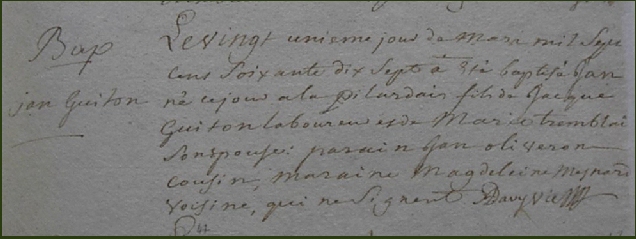 Bap
jan Guiton
Le vingt unieme jour de mars mil sept
cens soixante dix sept a été baptisé jan
né ce jour a la pilardais fils de jacque
Guiton laboureur et de Marie tremblai
son epouse: parain jan oliveron
cousin, maraine Magdeleine Mesnard
voisine, qui ne signent Davy vic